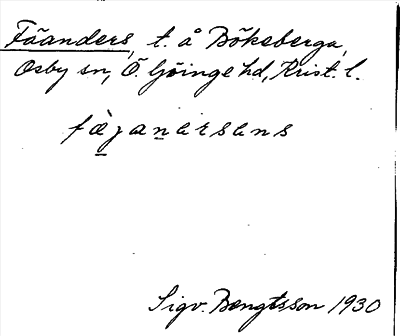 Fäanders, t. å Böksberga,
Osby sn, Ö. Göinge hd, Krist. l.
fæ̀janɑrsɑns
Sigv. Bengtsson 1930